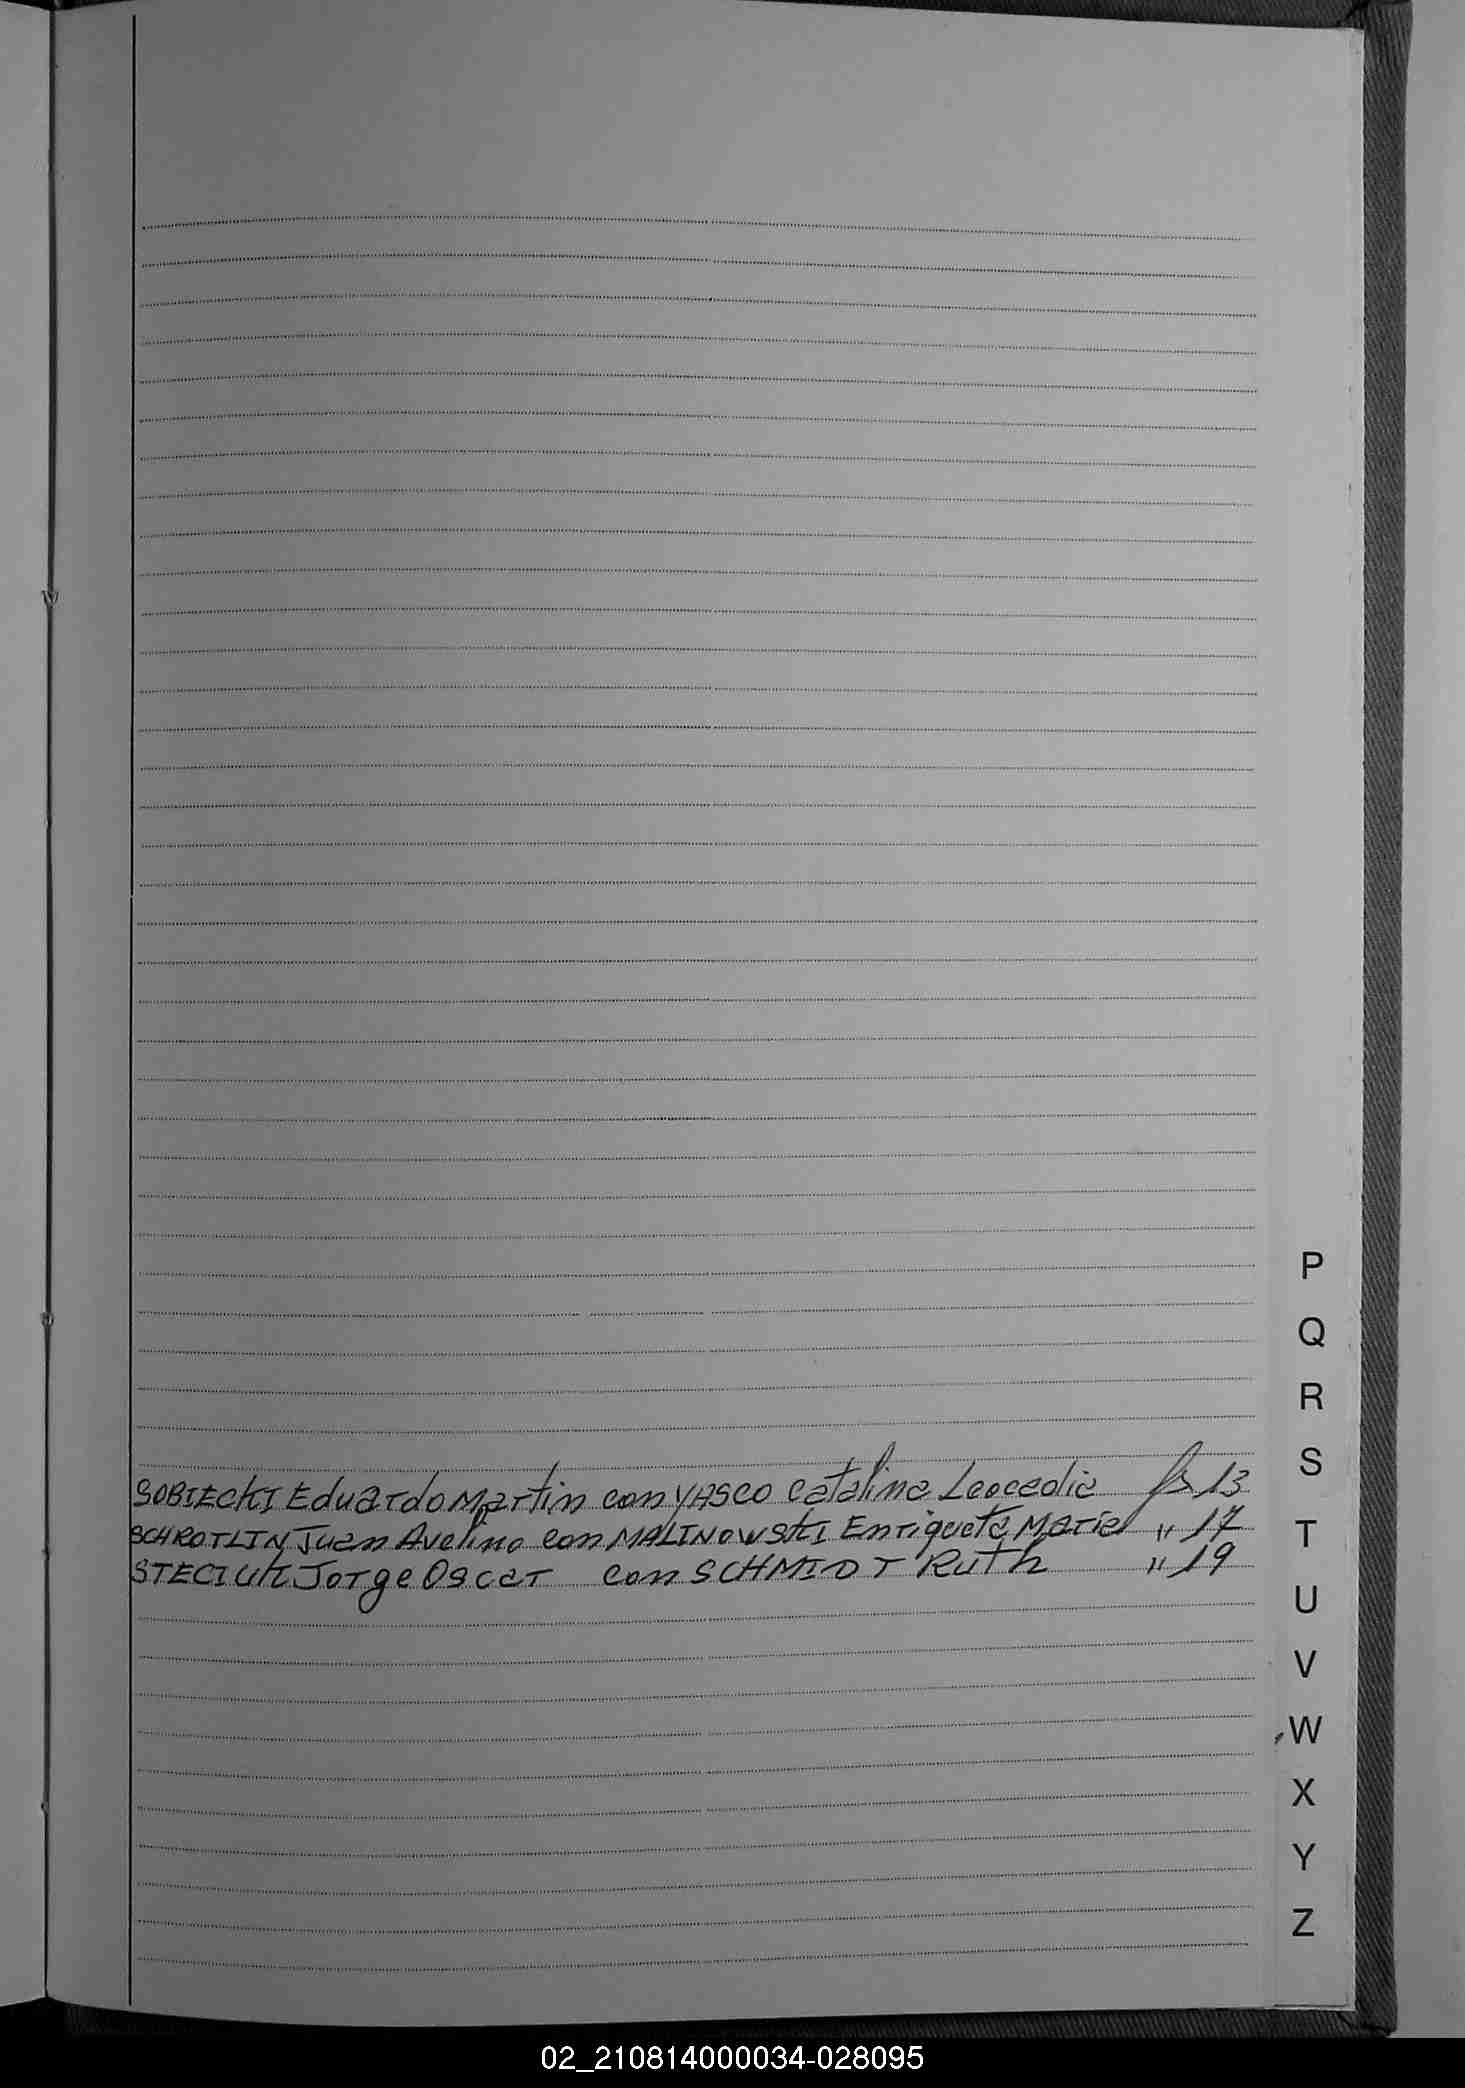 SOBIECKI Eduardo Martin con YASCO Catalina Leocadia fs 13
SCHROTLIN Juan Avelino con MALINOWSKI Enriqueta Maria " 17
STECIUK Jorge Oscar con SCHMIDT Ruth " 19
P
Q
R
S
T
U
V
W
X
Y
Z
02_210814000034-028095